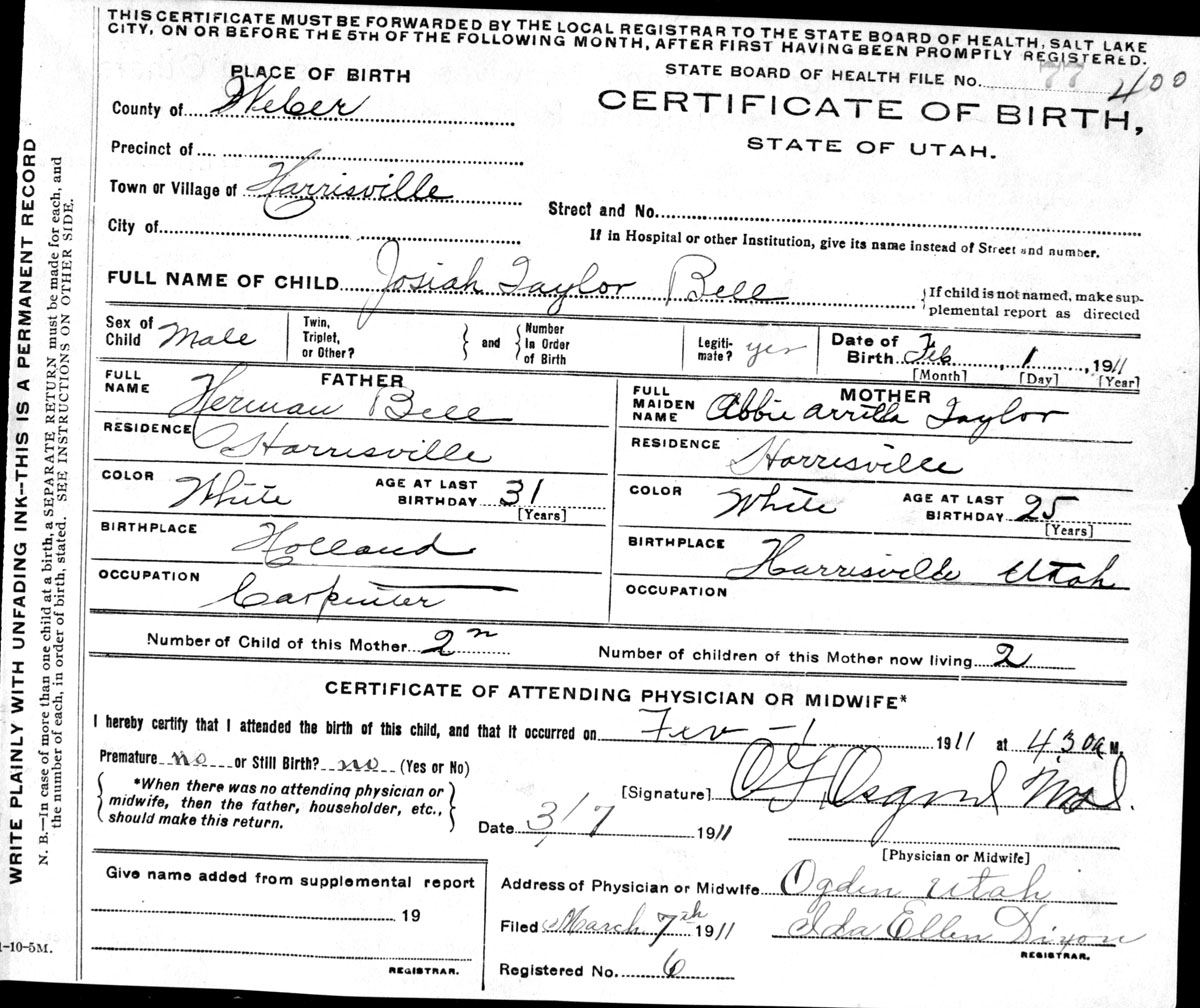 THIS CERTIFICATE MUST BE FORWARDED BY THE LOCAL REGISTRAR TO THE STATE BOARD OF HEALTH, SALT LAKE
CITY, ON OR BEFORE THE 5TH OF THE FOLLOWING MONTH, AFTER FIRST HAVING BEEN PROMPTLY REGISTERED.
PLACE OF BIRTH
STATE BOARD OF HEALTH FILE No. 77 400
County of Weber
CERTIFICATE OF BIRTH,
STATE OF UTAH.
Precinct of
Town or Village of Harrisville
Street and No.
City of
If in Hospital or other Institution, give its name instead of Street and number.
FULL NAME OF CHILD Josiah Taylor Bell
{If child is not named, make sup-
plemental report as directed
Sex of
Child Male
Twin,
Triplet,
or Other?
} and {
Number
In Order
of Birth
Legiti-
mate? yes
Date of
Birth Feb 1, 1911
[Month] [Day] [Year]
FATHER
FULL
NAME Herman Bell
RESIDENCE Harrisville
COLOR White
AGE AT LAST
BIRTHDAY 31
[Years]
BIRTHPLACE Holland
OCCUPATION Carpenter
MOTHER
FULL
MAIDEN
NAME Abbie Arrilla Taylor
RESIDENCE Harrisville
COLOR White
AGE AT LAST
BIRTHDAY 25
[Years]
BIRTHPLACE Harrisville Utah
OCCUPATION
Number of Child of this Mother 2n
Number of children of this Mother now living 2
CERTIFICATE OF ATTENDING PHYSICIAN OR MIDWIFE*
I hereby certify that I attended the birth of this child, and that it occurred on Fev - 1 1911 at 4,30a M.
Premature no or Still Birth? no (Yes or No)
{ *When there was no attending physician or
midwife, then the father, householder, etc.,
should make this return. }
[Signature] Osgood M.D.
Date 3/7 1911
[Physician or Midwife]
Give name added from supplemental report
19
REGISTRAR.
Address of Physician or Midwife Ogden Utah
Filed March 7th 1911 Ida Ellen Dixon
REGISTRAR.
Registered No. 6
WRITE PLAINLY WITH UNFADING INK--THIS IS A PERMANENT RECORD
N. B.—In case of more than one child at a birth, a SEPARATE RETURN must be made for each, and
the number of each, in order of birth, stated. SEE INSTRUCTIONS ON OTHER SIDE.
-10-5M.